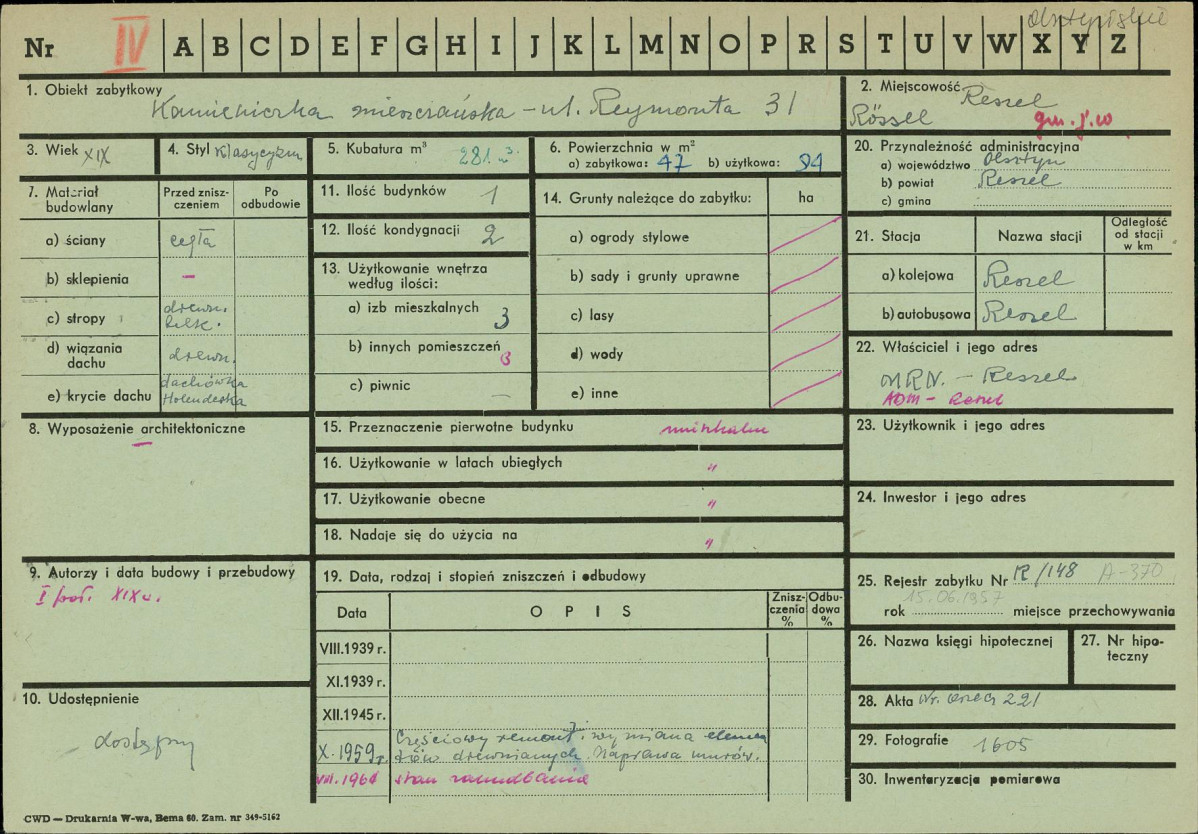 Olsztyńskie
Nr IV A B C D E F G H I J K L M N O P R S T U V W X Y Z
1. Obiekt zabytkowy
Kamieniczka mieszczańska - ul. Reymonta 31
2. Miejscowość Reszel
Rössel gm. j.w
3. Wiek XIX
4. Styl Klasycyzm
5. Kubatura m³ 281 m³.
6. Powierzchnia w m²
a) zabytkowa: 47 b) użytkowa: 94
20. Przynależność administracyjna
a) województwo Olsztyn
b) powiat Reszel
c) gmina
7. Materiał budowlany
Przed zniszczeniem
Po odbudowie
a) ściany cegła
b) sklepienia —
c) stropy drewn. belk.
d) wiązania dachu drewn.
e) krycie dachu dachówka Holenderka
11. Ilość budynków 1
12. Ilość kondygnacji 2
13. Użytkowanie wnętrza według ilości:
a) izb mieszkalnych 3
b) innych pomieszczeń 3
c) piwnic —
14. Grunty należące do zabytku: ha
a) ogrody stylowe
b) sady i grunty uprawne
c) lasy
d) wody
e) inne
21. Stacja
Nazwa stacji
Odległość od stacji w km
a) kolejowa Reszel
b) autobusowa Reszel
22. Właściciel i jego adres
MRN. - Reszel
ADM - Reszel
8. Wyposażenie architektoniczne
—
15. Przeznaczenie pierwotne budynku mieszkalne
16. Użytkowanie w latach ubiegłych "
17. Użytkowanie obecne "
18. Nadaje się do użycia na "
23. Użytkownik i jego adres
24. Inwestor i jego adres
9. Autorzy i data budowy i przebudowy
I poł. XIX w.
10. Udostępnienie
dostępny
19. Data, rodzaj i stopień zniszczeń i odbudowy
Data
OPIS
Zniszczenia %
Odbudowa %
VIII.1939 r.
XI.1939 r.
XII.1945 r.
X.1959 r. Częściowy remont, wymiana elemen
tów drewnianych. Naprawa murów.
VIII.1961 stan zaniedbania
25. Rejestr zabytku Nr R/148 A-370
15.06.1957
rok miejsce przechowywania
26. Nazwa księgi hipotecznej
27. Nr hipoteczny
28. Akta Nr. 221
29. Fotografie 1605
30. Inwentaryzacja pomiarowa
CWD — Drukarnia W-wa, Bema 60. Zam. nr 349-5162